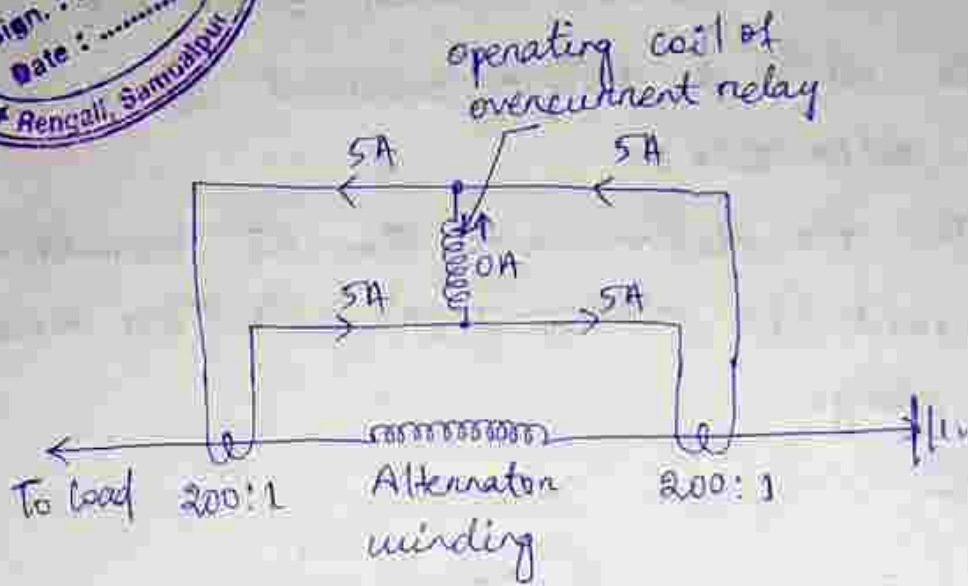 Sign. :
Date : ............
Rengali, Sambalpur
operating coil of
overcurrent relay
5A
5A
0A
5A
5A
To load
200:1
Alternator
winding
200:1